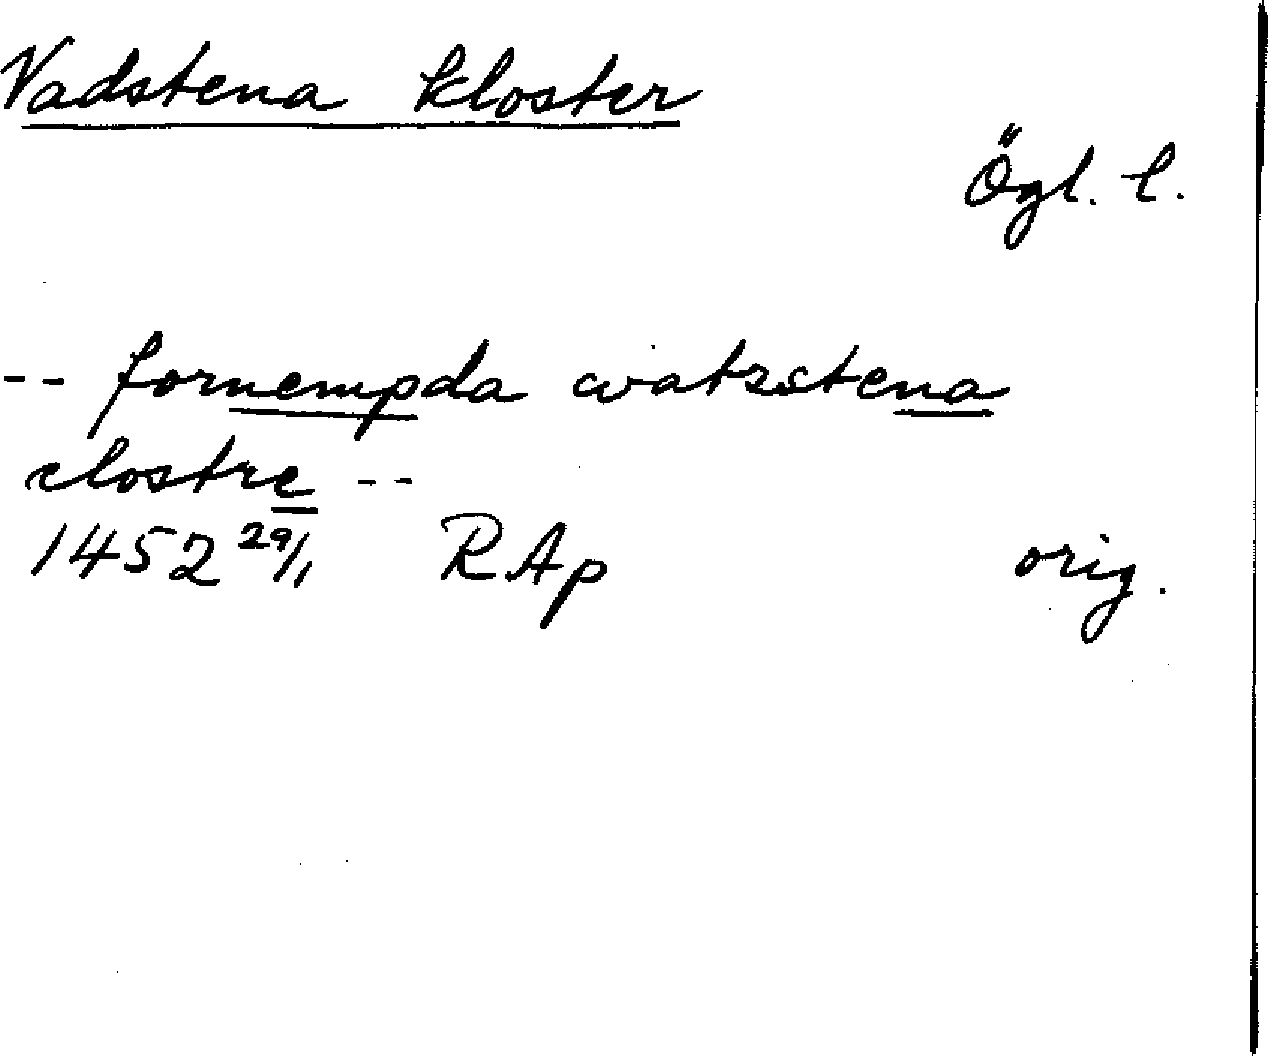 Vadstena kloster
Ögl. l.
-- fornempda watzstena
clostre --
1452 29/1 RAp orig.